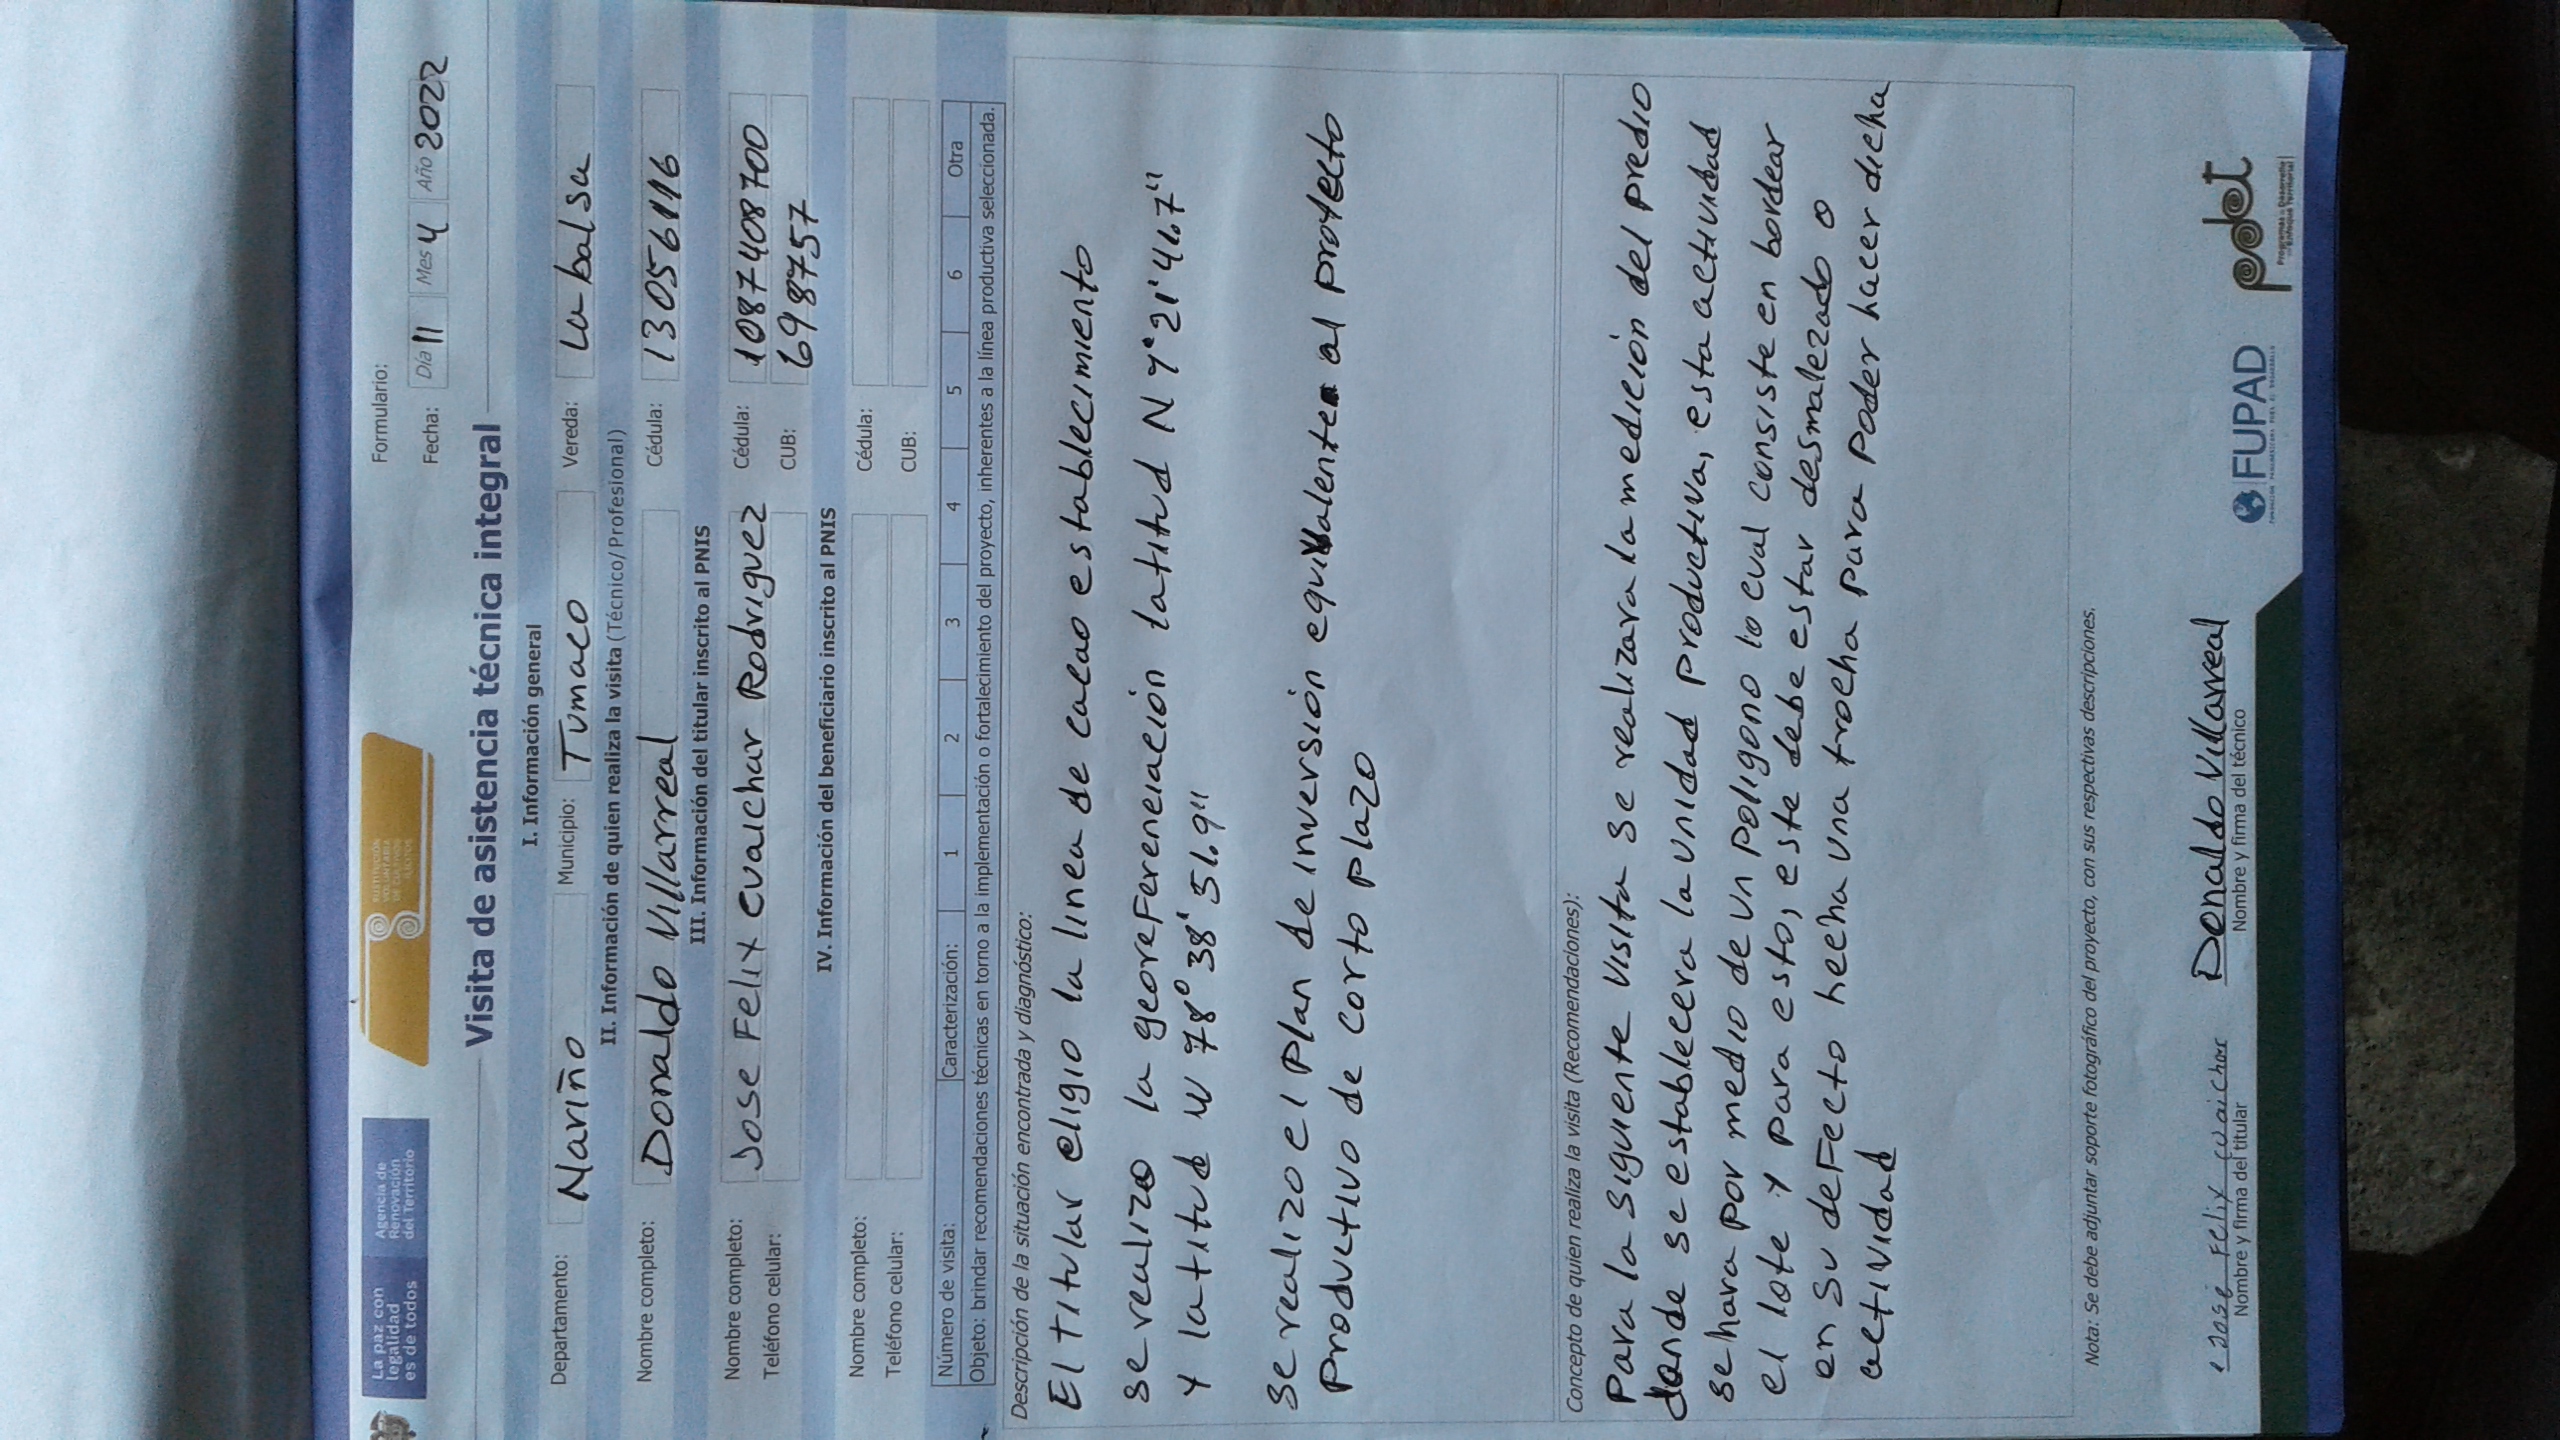 La paz con
legalidad
es de todos
Agencia de
Renovación
del Territorio
SUSTITUCIÓN
VOLUNTARIA
DE CULTIVOS
ILÍCITOS
Formulario:
Fecha: Día 11 Mes 4 Año 2022
Visita de asistencia técnica integral
I. Información general
Departamento: Nariño Municipio: Tumaco Vereda: La balsa
II. Información de quien realiza la visita (Técnico/Profesional)
Nombre completo: Donaldo Villarreal Cédula: 13056116
III. Información del titular inscrito al PNIS
Nombre completo: Jose Felix cuaichar Rodriguez Cédula: 1087408700
Teléfono celular: CUB: 698757
IV. Información del beneficiario inscrito al PNIS
Nombre completo: Cédula:
Teléfono celular: CUB:
Número de visita: Caracterización: 1 2 3 4 5 6 Otra
Objeto: brindar recomendaciones técnicas en torno a la implementación o fortalecimiento del proyecto, inherentes a la línea productiva seleccionada.
Descripción de la situación encontrada y diagnóstico:
El titular eligio la linea de cacao establecimiento
se realizo la georeferenciación latitud N 1° 21' 41.7"
y latitud W 78° 38' 51.9"
se realizo el plan de inversión equivalente al protecto
productivo de corto plazo
Concepto de quien realiza la visita (Recomendaciones):
Para la siguiente visita se realizara la medición del predio
donde se establecera la unidad productiva, esta actividad
se hara por medio de un poligono lo cual consiste en bordear
el lote y para esto, este debe estar desmalezado o
en su defecto hecha una trocha para poder hacer dicha
actividad
Nota: Se debe adjuntar soporte fotográfico del proyecto, con sus respectivas descripciones.
José Felix cuaichar
Nombre y firma del titular
Donaldo Villarreal
Nombre y firma del técnico
FUPAD
pdet
Programas de Desarrollo
con Enfoque Territorial